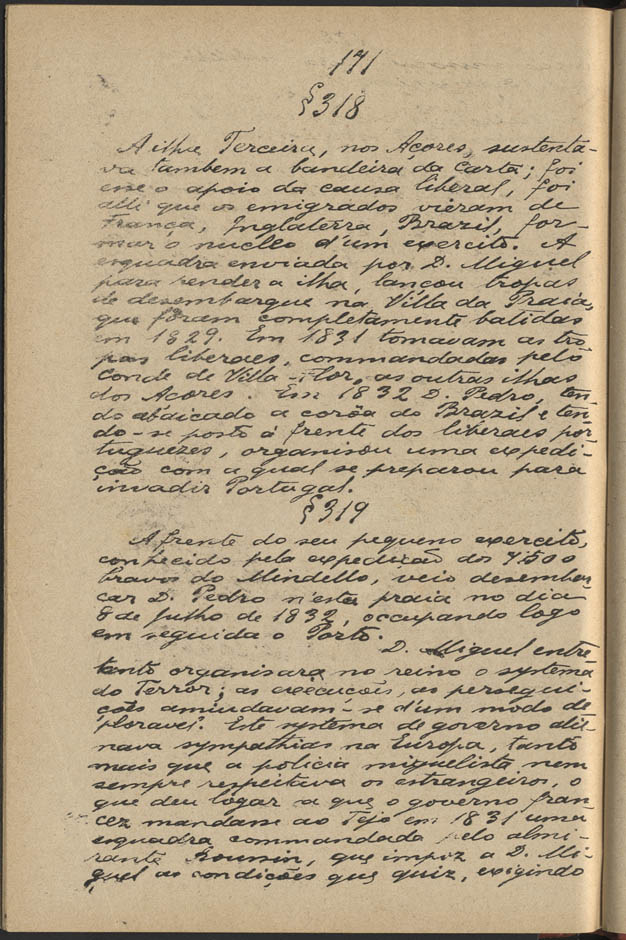 171
§318
A ilha Terceira, nos Açores, sustenta-
va tambem a bandeira da Carta; foi
esse o apoio da causa liberal, foi
alli que os emigrados vieram de
França, Inglaterra, Brazil, for-
mar o nucleo d'um exercito. A
esquadra enviada por D. Miguel
para render a ilha, lançou tropas
de desembarque na Villa da Praia,
que foram completamente batidas
em 1829. Em 1831 tomavam as tro-
pas liberaes, commandadas pelo
conde de Villa-Flor, as outras ilhas
dos Açores. Em 1832 D. Pedro, ten-
do abdicado a corôa do Brazil e ten-
do-se posto á frente dos liberaes por-
tuguezes, organisou uma expedi-
ção com a qual se preparou para
invadir Portugal.
§319
A frente do seu pequeno exercito,
conhecido pela expedição dos 7:500
bravos do Mindello, veio desembar
car D. Pedro n'esta praia no dia
8 de Julho de 1832, occupando logo
em seguida o Porto.
D. Miguel entre-
tanto organisara no reino o systema
do Terror; as execuções, as persegui-
ções amiudavam-se d'um modo de-
ploravel. Este systema de governo alie-
nava sympathias na Europa, tanto
mais que a policia miguelista nem
sempre respeitava os estrangeiros, o
que deu logar a que o governo fran-
cez mandasse ao Tejo em 1831 uma
esquadra commandada pelo almi-
rante Roussin, que impoz a D. Mi-
guel as condições que quiz, exigindo